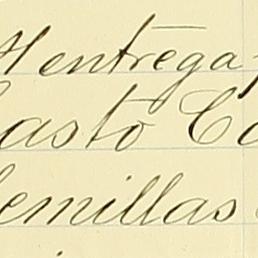 Al entrega
Casto Ca
Semillas